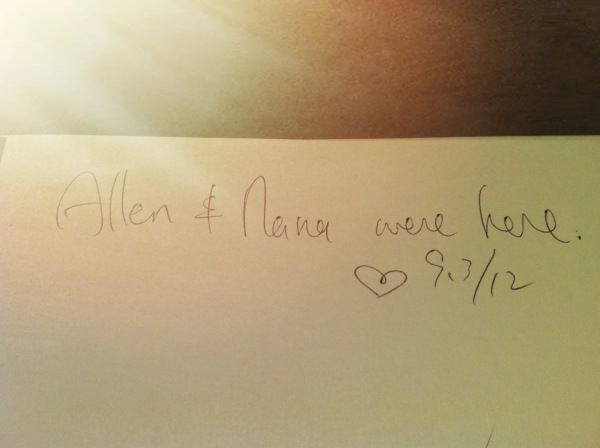 Allen & Nana were here.
♡ 9.3/12